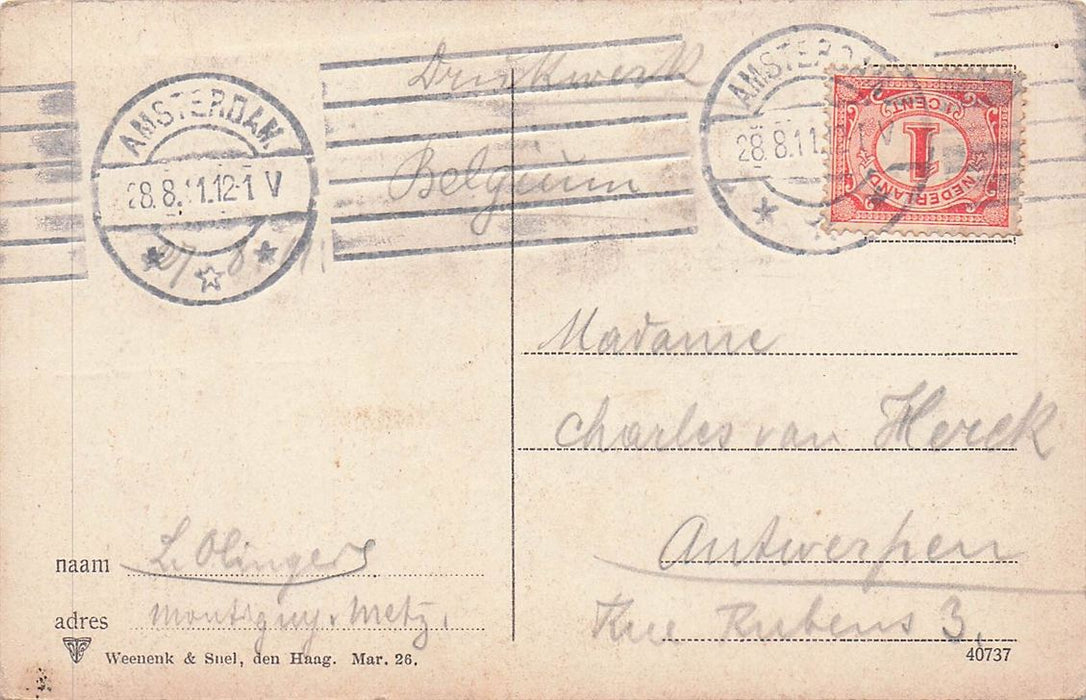 Drukwerk
Belgium
AMSTERDAM
28.8.11.12-1 V
AMSTERDAM
28.8.11.12-1 V
1 CENT
1
NEDERLAND
27 8. 11
Madame
Charles van Herck
Antwerpen
Rue Rubens 3
naam L. Olinger
adres Montigny. Metz.
Weenenk & Snel, den Haag. Mar. 26.
40737